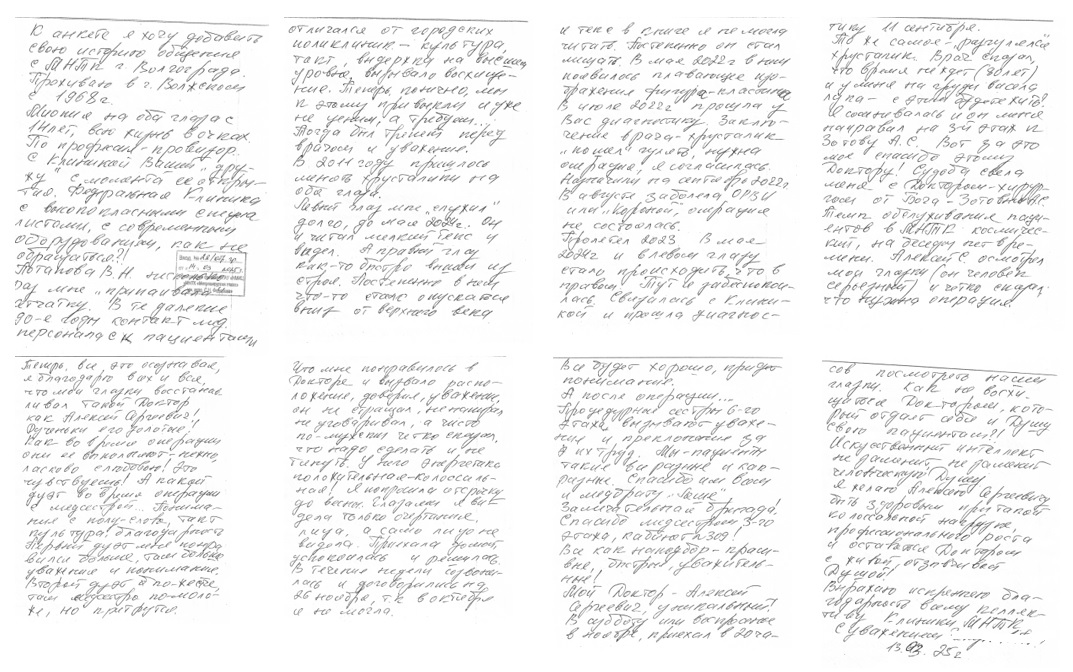 К анкете я хочу добавить
свою историю общения
с МНТК г. Волгограда.
Проживаю в г. Волжском
с 1968 г.
Миопия на оба глаза с
14 лет, всю жизнь в очках.
По профессии - провизор.
С Клиникой Вашей "дру-
жу" с момента её откры-
тия. Федеральная клиника
с высококлассными специа
листами, с современным
оборудованием, как не
обращаться?!
Потапова В.Н. несколько
раз мне "припаивала"
сетчатку. В те далёкие
90-е годы контакт мед.
персонала с к пациентами
отличался от городских
поликлиник - культура,
такт, выдержка на высшем
уровне, вызывало восхище-
ние. Теперь, конечно, мы
к этому привыкли и уже
не ценим, а требуем...
Тогда был трепет перед
врачом и уважение.
В 2011 году пришлось
менять хрусталики на
оба глаза.
Левый глаз мне "служил"
долго, до мая 2024г. Он
и читал мелкий текс и
видел. А правый глаз
как-то быстро вышел из
строя. Постепенно в нём
что-то стало опускаться
вниз от верхнего века
и текс в книге я не могла
читать. Постепенно он стал
мешать. В мае 2022г в нём
появилось плавающее изо-
бражение фигура-пластина
В июле 2022г прошла у
Вас диагностику. Заклю-
чение врача - хрусталик
"пошёл" гулять, нужна
операция, я согласилась.
Назначили на сентябрь 2022г
В августе заболела, ОРВИ
или "Короной", операция
не состоялась.
Пролетел 2023 В мае
2024г и в левом глазу
стало происходить, что в
правом. Тут я забеспокои-
лась. Связалась с Клини-
кой и прошла диагнос-
тику 11 сентября.
То же самое - "разгулялся"
хрусталик. Врач сказал,
что время не ждёт (80 лет)
и у меня на груди висела
лапа - с этим будете жить?
Я сомневалась и он меня
направил на 3й этаж к
Зотову А.С. Вот за это
моё спасибо этому
Доктору! Судьба свела
меня с Доктором-хирур-
гом от Бога - Зотовым А.С.
Темп обслуживания паци-
ентов в МНТК космичес-
кий, на беседы нет вре-
мени. Алексей С. осмотрел
мои глазки (он человек
серьёзный) и чётко сказал,
что нужна операция.
Теперь, всё это осознавая,
я благодарю всех и вся,
что мои глазки восстанав
ливал такой Доктор
как Алексей Сергеевич!
Рученьки его золотые!
Как во время операции
они её выполняют - нежно,
ласково с любовью! Это
чувствуешь! А какой
дуэт во время операции
с медсестрой... Понима-
ние с полу-слова, такт
культура! благодарность
Первый дуэт мне понра-
вился больше, там больше
уважение и понимание.
Второй дуэт й по-жёстче,
там медсестра по-моло-
же, но притрутся.
Что мне понравилось в
Докторе и вызвало распо-
ложение, доверие, уважение,
он не стращал, не
не уговаривал, а чисто
по-мужски чётко сказал,
что надо сделать и не
тянуть. У него энергетика
положительная - колоссаль-
ная! Я попросила отсрочку
до весны. Глазами я ви-
дела только очертания,
лица, а само лицо не
видела. Приехала домой,
успокоилась и решилась.
В течение недели созвони-
лась и договорились на
26 ноября, т.к. в октябре
я не могла.
Всё будет хорошо, придёт
понимание.
А после операции...
Процедурные сёстры 6-го
этажа вызывают уваже-
ние и преклонение за
их труд. Мы - пациенты
такие вы разные и кап-
ризные. Спасибо им всем
и медбрату - Лёше.
Замечательная бригада.
Спасибо медсёстрам 3-го
этажа, кабинет №309!
Все как на подбор - краси-
вые, быстрые, уважитель-
ные!
Мой Доктор - Алексей
Сергеевич, уникальный!
В субботу или воскресенье
в ноябре, приехал в 20 ча-
сов посмотреть наши
глазки. Как не восхи-
щаться Доктором, кото-
рый отдаёт себя и Душу
свою пациентам?!
Искусственный интеллект
не заменит, не заменит
человеческую Душу
Я желаю Алексею Сергеевичу
быть здоровым при такой
колоссальной нагрузке,
профессионального роста
и остаться Доктором
с живой, отзывчивой
Душой!
Выражаю искреннюю бла-
годарность всему коллек-
тиву Клиники МНТК
С уважением
13.03.25г